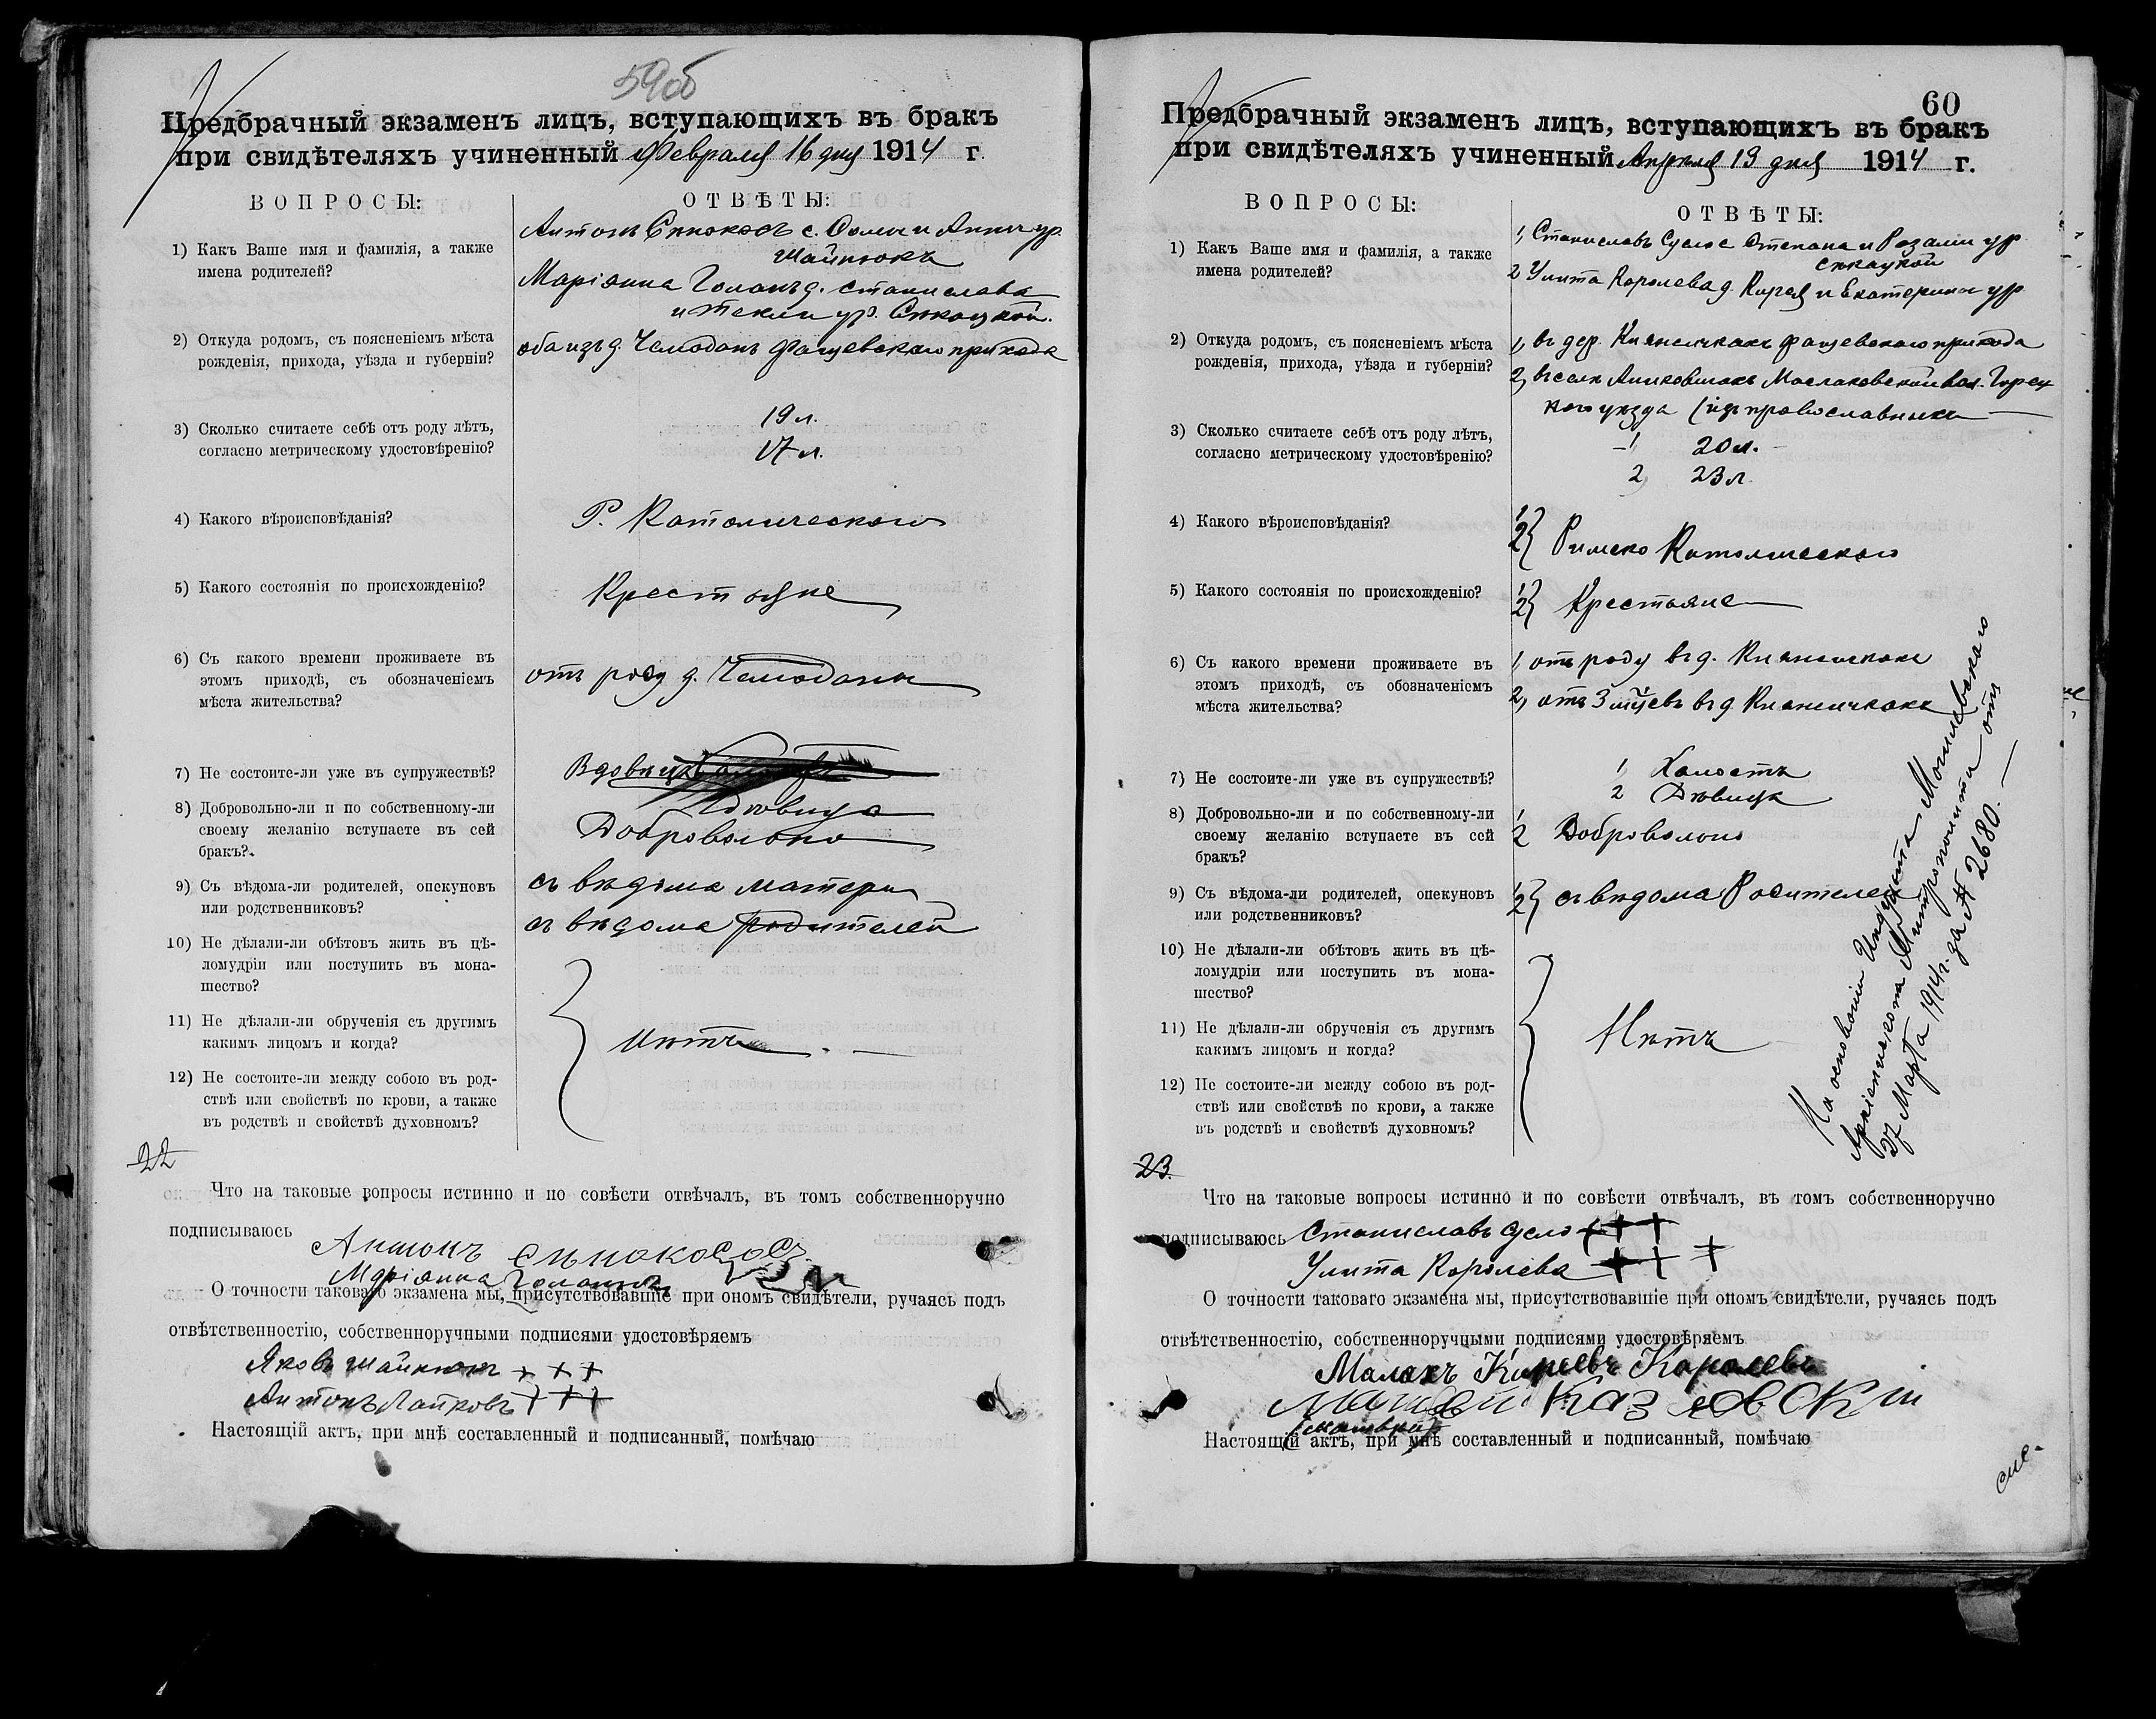 59об
Предбрачный экзаменъ лицъ, вступающихъ въ бракъ
при свидѣтеляхъ учиненный Февраля 16 дня 1914 г.
ВОПРОСЫ:
ОТВѢТЫ:
1) Какъ Ваше имя и фамилія, а также
имена родителей?
Антонъ с. и Анны ур.
Шайнюкъ
Маріанна Голонъ д. Станислава
и Текли ур.
2) Откуда родомъ, съ поясненіемъ мѣста
рожденія, прихода, уѣзда и губерніи?
оба изъ д. Чемоданъ Фащевскаго прихода
3) Сколько считаете себѣ отъ роду лѣтъ,
согласно метрическому удостовѣренію?
19 л.
17 л.
4) Какого вѣроисповѣданія?
Р. Католическаго
5) Какого состоянія по происхожденію?
Крестьяне
6) Съ какого времени проживаете въ
этомъ приходѣ, съ обозначеніемъ
мѣста жительства?
отъ роду д. Чемоданы
7) Не состоите-ли уже въ супружествѣ?
8) Добровольно-ли и по собственному-ли
своему желанію вступаете въ сей
бракъ?
Добровольно
9) Съ вѣдома-ли родителей, опекуновъ
или родственниковъ?
съ вѣдома матери
съ вѣдома родителей
10) Не дѣлали-ли обѣтовъ жить въ цѣ-
ломудріи или поступить въ мона-
шество?
11) Не дѣлали-ли обрученія съ другимъ
какимъ лицомъ и когда?
12) Не состоите-ли между собою въ род-
ствѣ или свойствѣ по крови, а также
въ родствѣ и свойствѣ духовномъ?
Нѣтъ
22
Что на таковые вопросы истинно и по совѣсти отвѣчалъ, въ томъ собственноручно
подписываюсь
Антонъ
Маріанна
О точности таковаго экзамена мы, присутствовавшіе при ономъ свидѣтели, ручаясь подъ
отвѣтственностію, собственноручными подписями удостовѣряемъ
Яковъ Шайнюкъ + + +
Антонъ Лапковъ + + +
Настоящій актъ, при мнѣ составленный и подписанный, помѣчаю
60
Предбрачный экзаменъ лицъ, вступающихъ въ бракъ
при свидѣтеляхъ учиненный Апрѣля 13 дня 1914 г.
ВОПРОСЫ:
ОТВѢТЫ:
1) Какъ Ваше имя и фамилія, а также
имена родителей?
1, Станиславъ Сусло с Степана и Розалии ур
2 Улита Королева д. Кирея и Екатерины ур
2) Откуда родомъ, съ поясненіемъ мѣста
рожденія, прихода, уѣзда и губерніи?
1, въ дер. Княжичкахъ Фащевскаго прихода
2, въ селѣ Масалаковской вол. Горец
каго уѣзда (изъ православныхъ
3) Сколько считаете себѣ отъ роду лѣтъ,
согласно метрическому удостовѣренію?
1 20 л.
2, 23 л.
4) Какого вѣроисповѣданія?
1 2} Римско Католическаго
5) Какого состоянія по происхожденію?
1 2} Крестьяне
6) Съ какого времени проживаете въ
этомъ приходѣ, съ обозначеніемъ
мѣста жительства?
1, отъ роду въ д. Княжичкахъ
2, отъ 3 м-цевъ въ д. Княжичкахъ
7) Не состоите-ли уже въ супружествѣ?
1, Холостъ
2 Дѣвица
8) Добровольно-ли и по собственному-ли
своему желанію вступаете въ сей
бракъ?
1 2 Добровольно
9) Съ вѣдома-ли родителей, опекуновъ
или родственниковъ?
1 2} съ вѣдома Родителей
10) Не дѣлали-ли обѣтовъ жить въ цѣ-
ломудріи или поступить въ мона-
шество?
11) Не дѣлали-ли обрученія съ другимъ
какимъ лицомъ и когда?
12) Не состоите-ли между собою въ род-
ствѣ или свойствѣ по крови, а также
въ родствѣ и свойствѣ духовномъ?
Нѣтъ
На основаніи Индульта Могилевскаго
Архіепископа Митрополита отъ
27 Марта 1914 г. за № 2680.
23.
Что на таковые вопросы истинно и по совѣсти отвѣчалъ, въ томъ собственноручно
подписываюсь Станиславъ Сусло + + +
Улита Королева + + +
О точности таковаго экзамена мы, присутствовавшіе при ономъ свидѣтели, ручаясь подъ
отвѣтственностію, собственноручными подписями удостовѣряемъ
Малахъ Киреевъ Каралевъ
Казловскій
(Матвей)
Настоящій актъ, при мнѣ составленный и подписанный, помѣчаю